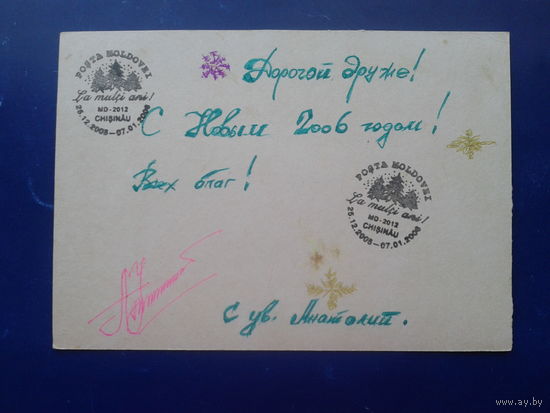 POŞTA MOLDOVEI
La mulţi ani!
MD-2012
CHIŞINĂU
26.12.2005-07.01.2006
Дорогой друже!
С Новым 2006 годом!
Всех благ!
POŞTA MOLDOVEI
La mulţi ani!
MD-2012
CHIŞINĂU
26.12.2005-07.01.2006
С ув. Анатолий.
www.ay.by